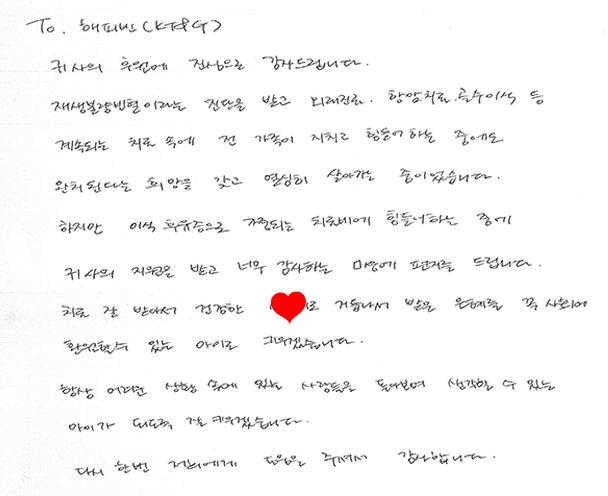 To. 해피빈(KT&G)
귀사의 후원에 진심으로 감사드립니다.
재생불량빈혈이라는 진단을 받고 외래진료. 항암치료. 골수이식 등
계속되는 치료 속에 전 가족이 지치고 힘들어 하는 중에도
완치된다는 희망을 갖고 열심히 살아가는 중이었습니다.
하지만 이식 후유증으로 가중되는 치료비에 힘들어하는 중에
귀사의 지원을 받고 너무 감사하는 마음에 편지를 드립니다.
치료 잘 받아서 건강한 로 거듭나서 받은 은혜를 꼭 사회에
환원할수 있는 아이로 키우겠습니다.
항상 어려운 상황 속에 있는 사람들을 돌아보며 생각할 수 있는
아이가 되도록 잘 키우겠습니다.
다시 한번 저희에게 도움을 주셔서 감사합니다.